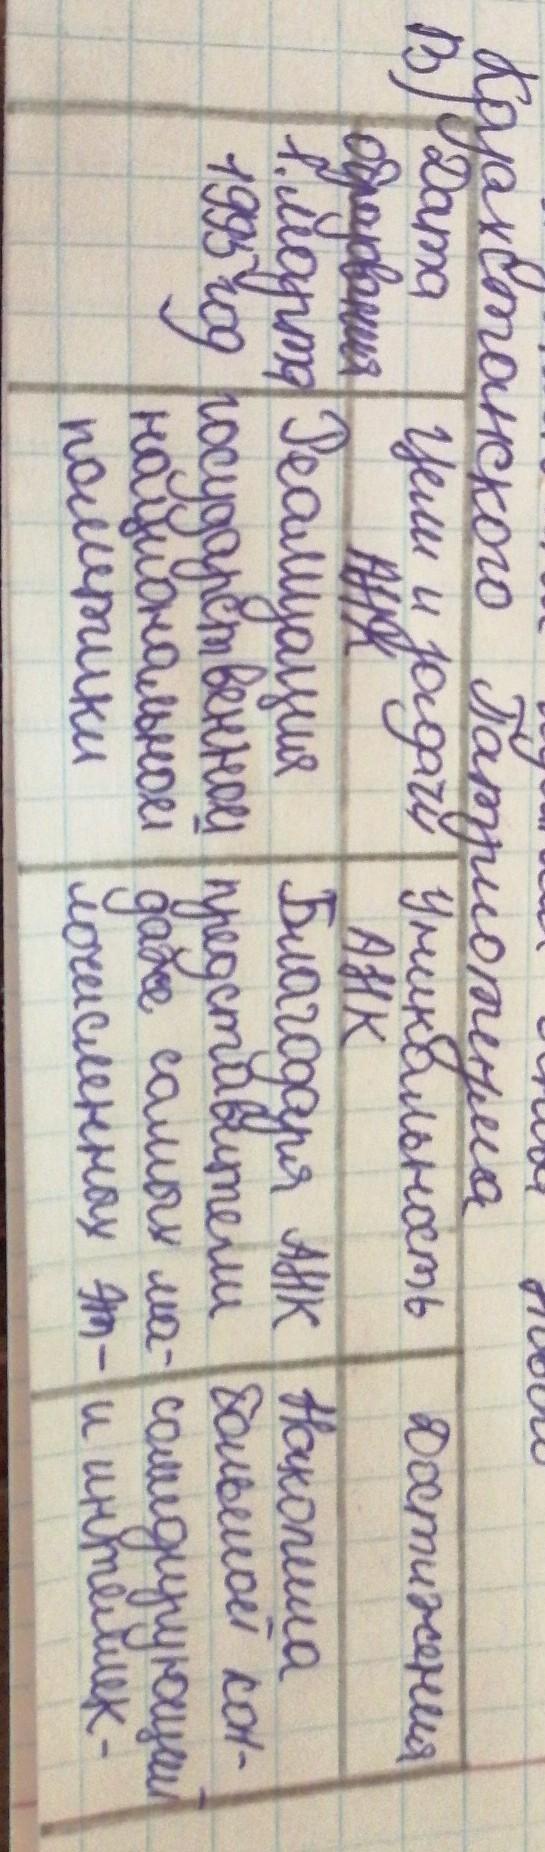 Казахстанского Патриотизма
В)
Дата
образования
Цели и задачи
АНК
Уникальность
АНК
Достижения
1. марта
1995 год
Реализация
государственной
национальной
политики
Благодаря АНК
представители
даже самых ма-
лочисленных эт-
Накопила
большой кон-
солидирующий
и интеллек-